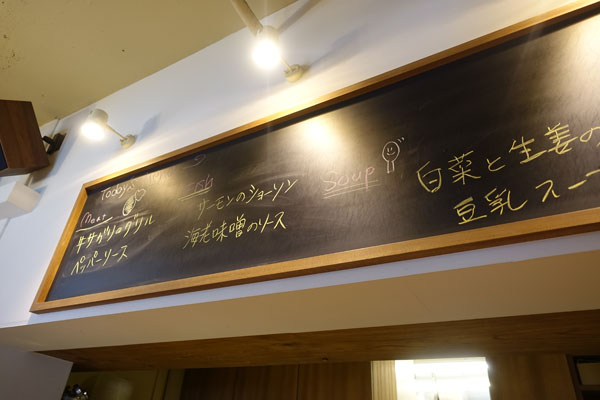 Today's
Meat
牛サガリのグリル
ペッパーソース
Fish
サーモンのショーソン
海老味噌のソース
Soup
白菜と生姜の
豆乳スープ